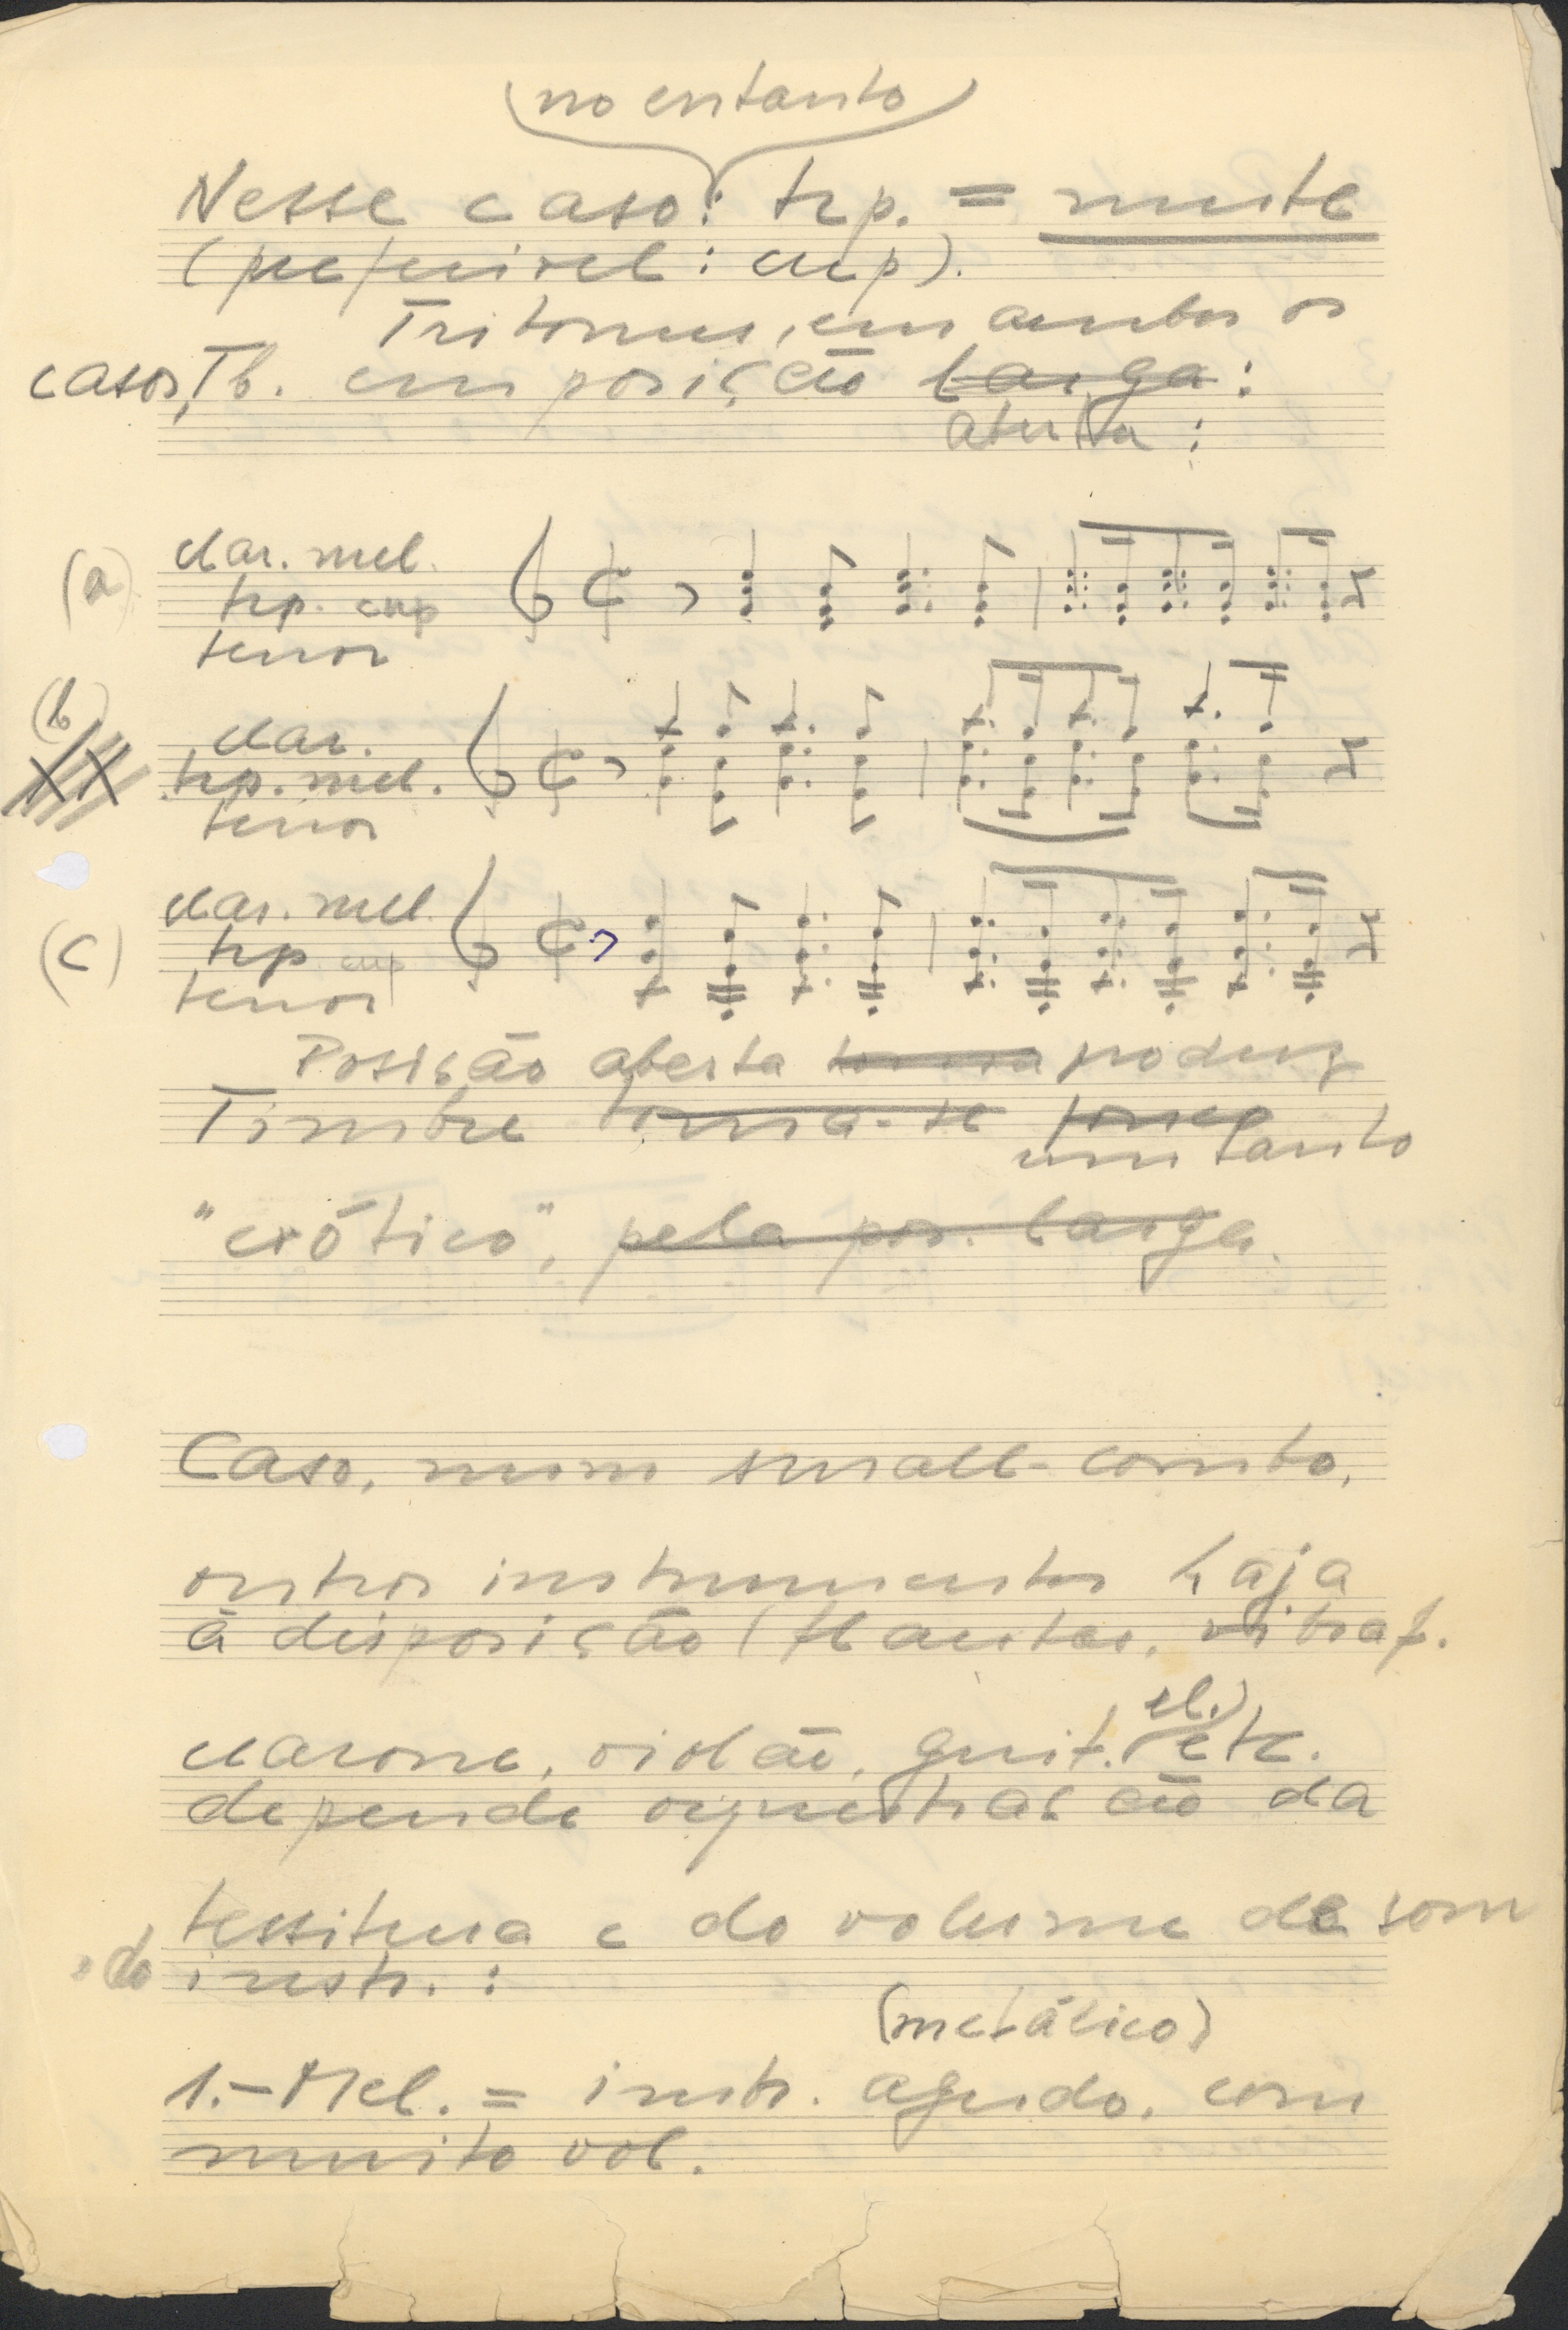 no entanto
Nesse caso: trp. = mute
(preferivel: cup).
Tritonus, em ambos os
casos, Tb. em posição larga:
aberta:
(a) clar. mel.
trp. cup
tenor
(b)
clar.
trp. mel.
tenor
clar. mel.
(c) trp cup
tenor
Posição aberta torna produz
Timbre torna-se
um tanto
"exótico", pela pos. larga.
Caso, num small-combo,
outros instrumentos haja
à disposição (flautas, vibraf.
el.)
clarone, violão, guit. etc.
depende orquestração da
tessitura e do volume de som
do instr. :
(metálico)
1.- Mel. = instr. agudo, com
muito vol.